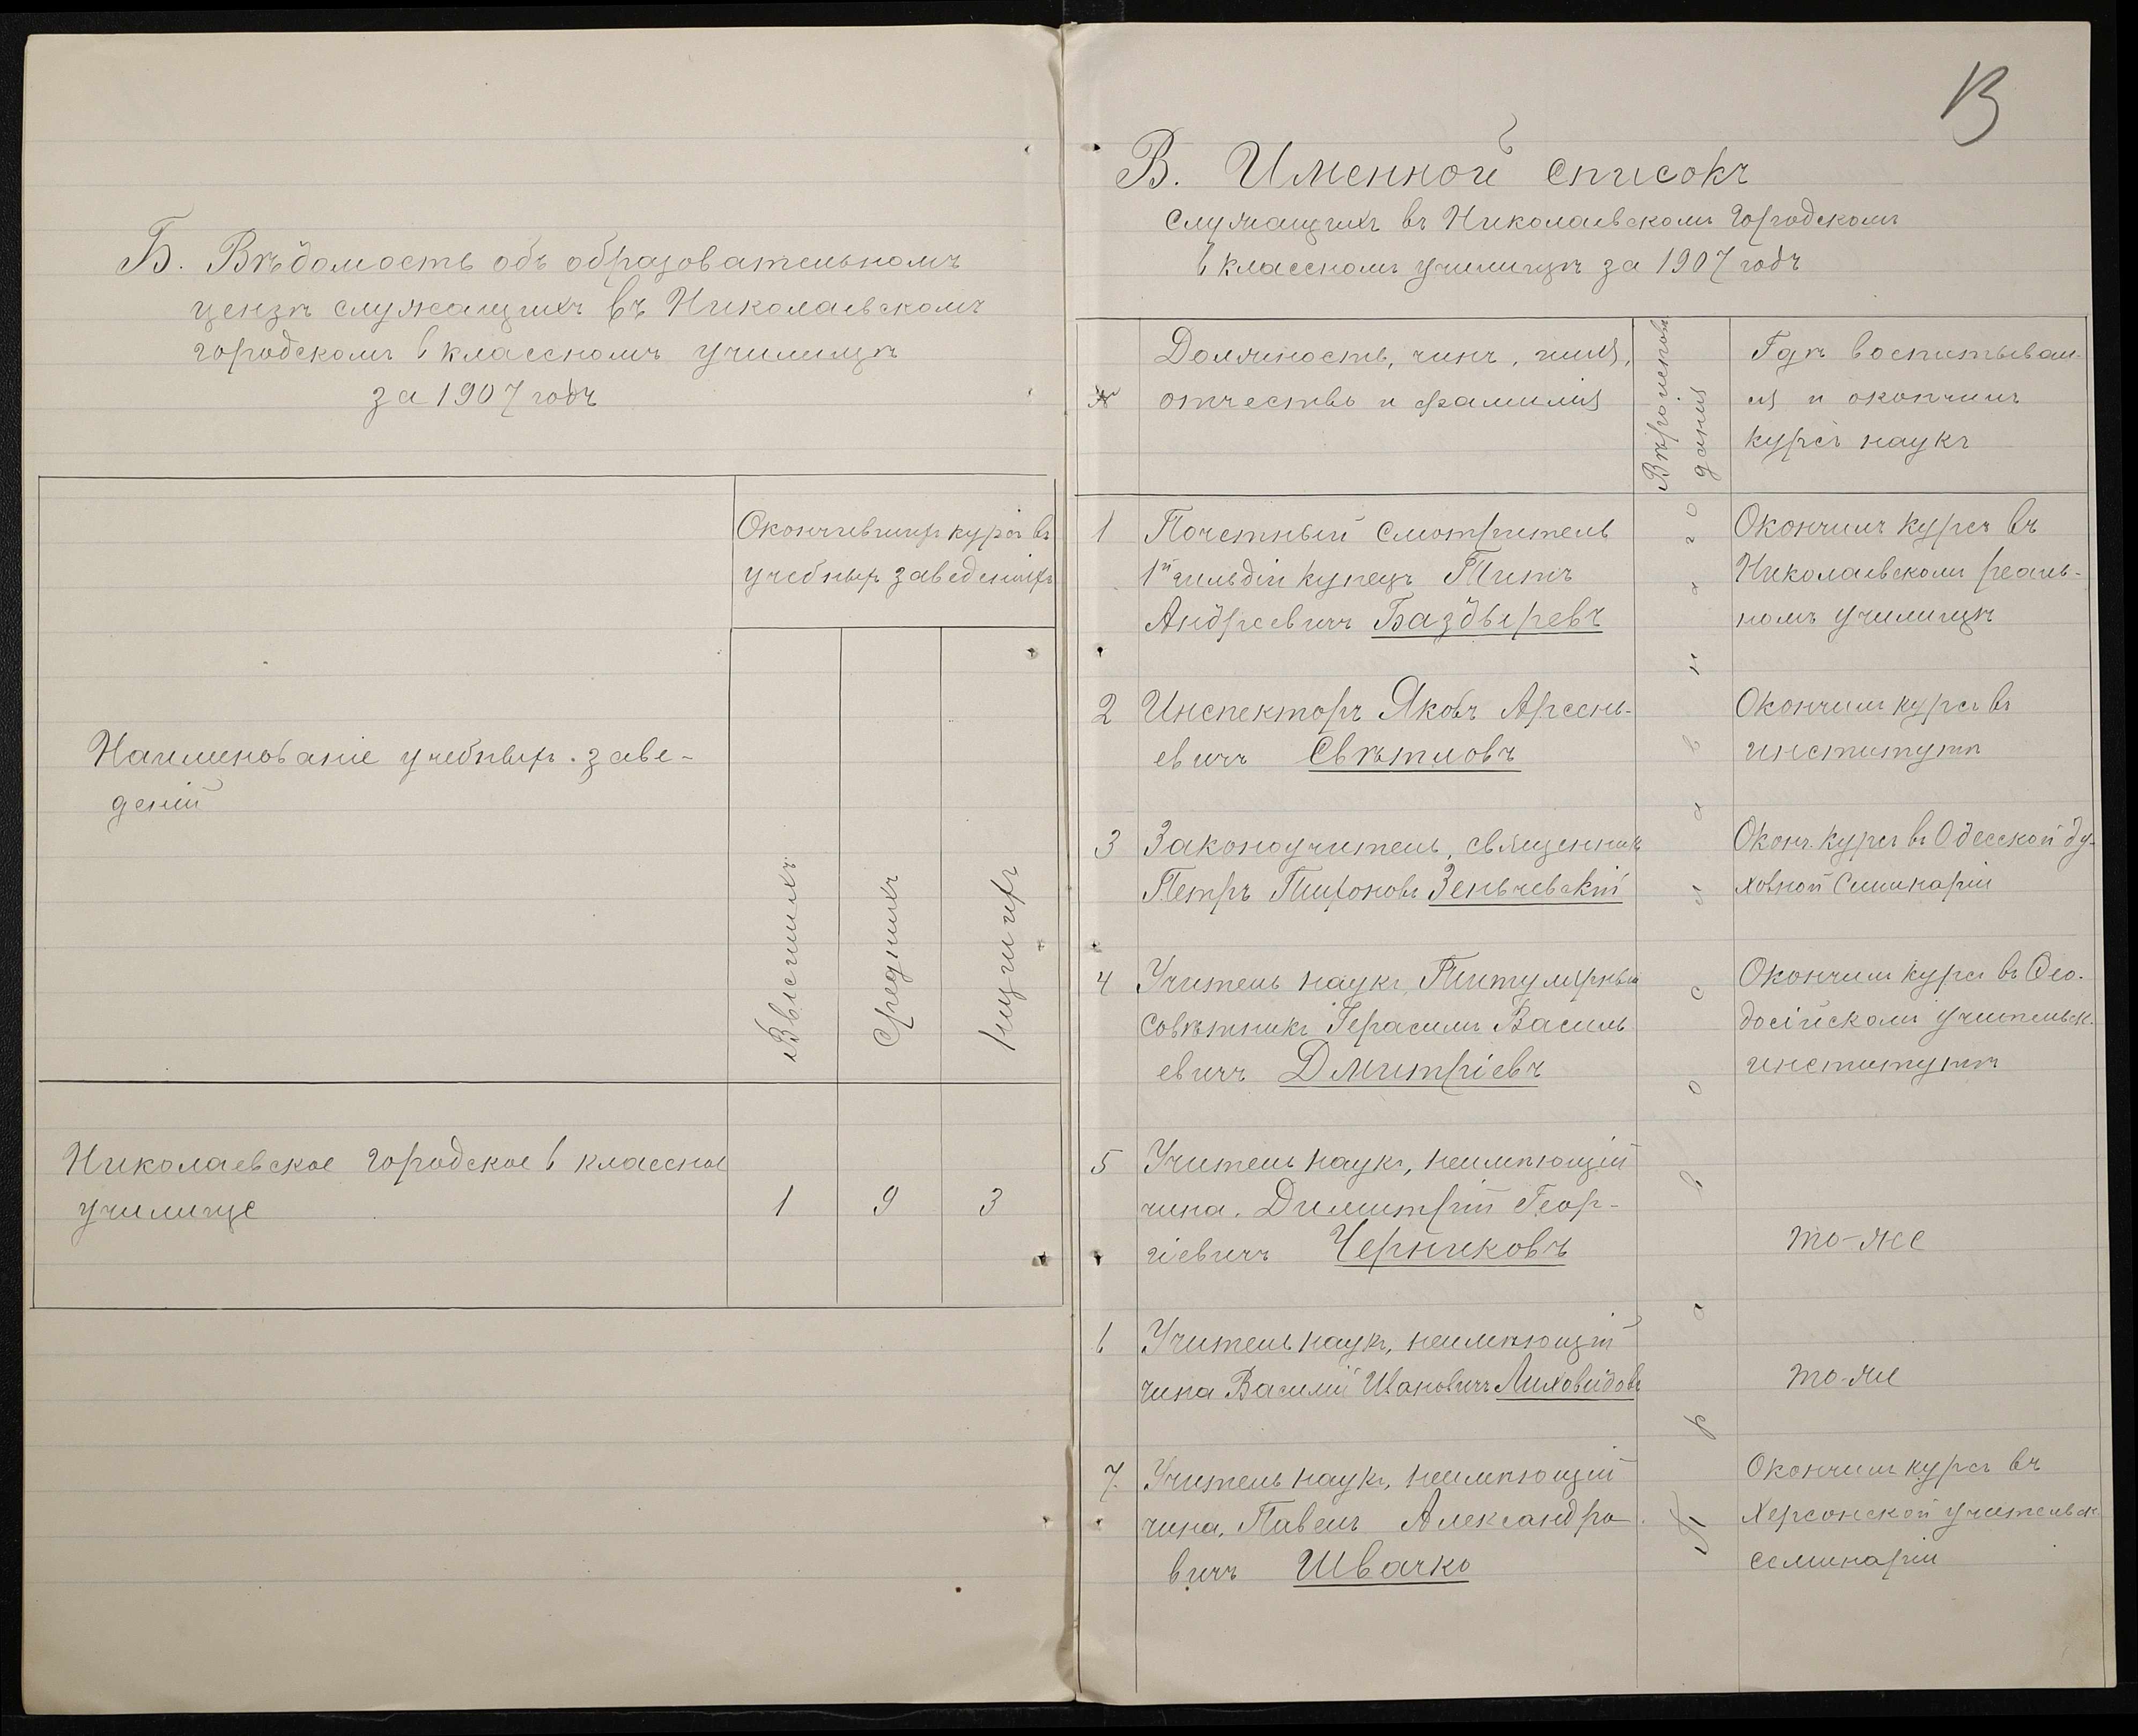 Б. Вѣдомость объ образовательномъ
цензѣ служащихъ въ Николаевскомъ
городскомъ 6 классномъ училищѣ
за 1907 годъ
Наименованіе учебныхъ заве-
деній
Окончившихъ курсъ въ
учебныхъ заведеніяхъ
Высшихъ
Среднихъ
Низшихъ
Николаевское городское 6 классное
училище
1
9
3
В. Именной списокъ
служащихъ въ Николаевскомъ городскомъ
6 классномъ училищѣ за 1907 годъ
№
Должность, чинъ, имя,
отчество и фамилія
Вѣроисповѣ-
данія
Гдѣ воспитывал-
ся и окончилъ
курсъ наукъ
Православнаго
1
Почетный Смотритель
1й гильдіи купецъ Титъ
Андреевичъ Баздыревъ
Окончилъ курсъ въ
Николаевскомъ реаль-
номъ училищѣ
2
Инспекторъ Яковъ Арсень-
евичъ Свѣтловъ
Окончилъ курсъ въ
институтѣ
3
Законоучитель, священникъ
Петръ Тихоновъ Зеньчевскій
Оконч. курсъ въ Одесской ду-
ховной Семинаріи
4
Учитель наукъ, Титулярный
Совѣтникъ Герасимъ Василь
евичъ Дмитріевъ
Окончилъ курсъ въ Ѳео-
досійскомъ учительск.
институтѣ
5
Учитель наукъ, неимѣющій
чина, Димитрій Геор-
гіевичъ Черниковъ
то-же
6
Учитель наукъ, неимѣющій
чина Василій Ивановичъ Лиховидовъ
то-же
7.
Учитель наукъ, неимѣющій
чина, Павелъ Александро
вичъ Швачко
Окончилъ курсъ въ
Херсонской учительск.
семинаріи